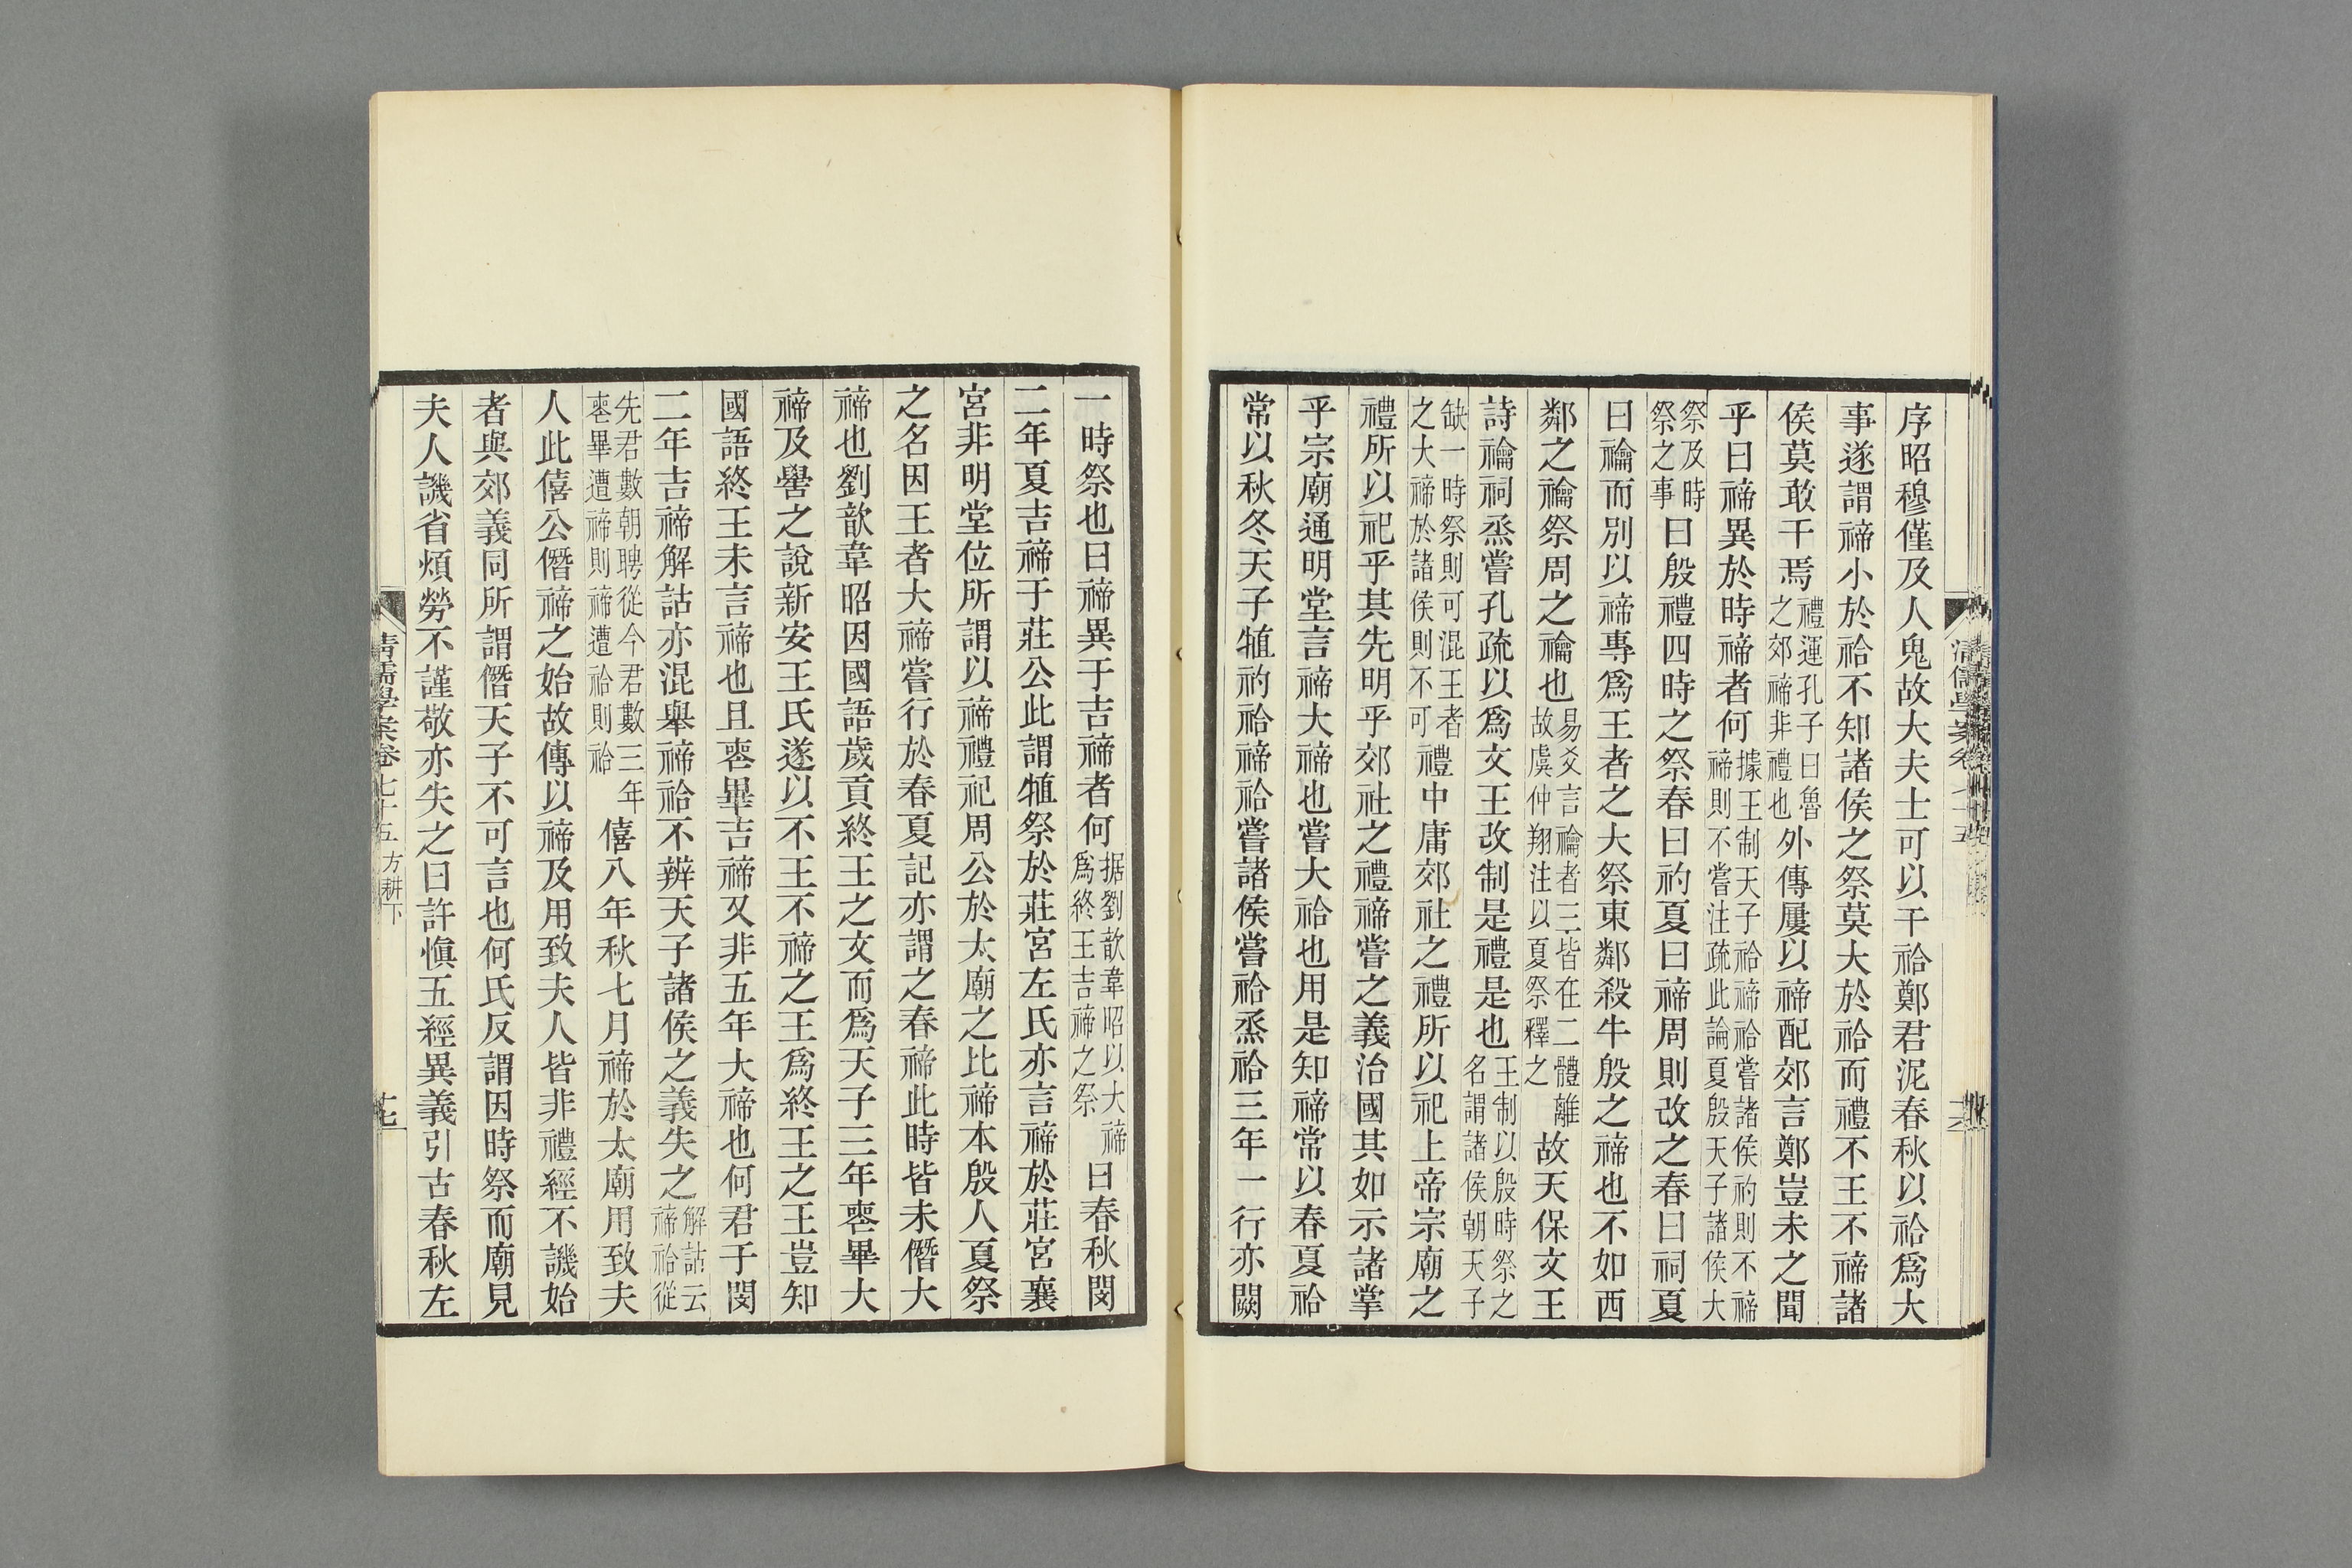 序昭穆僅及人鬼故大夫士可以干祫鄭君泥春秋以祫爲大
事遂謂禘小於祫不知諸侯之祭莫大於祫而禮不王不禘諸
侯莫敢干焉禮運孔子曰魯之郊禘非禮也外傳屢以禘配郊言鄭豈未之聞
乎曰禘異於時禘者何據王制天子祫禘祫嘗諸侯礿則不禘禘則不嘗注疏此論夏殷天子諸侯大
祭及時祭之事曰殷禮四時之祭春曰礿夏曰禘周則改之春曰祠夏
曰禴而別以禘專爲王者之大祭東鄰殺牛殷之禘也不如西
鄰之禴祭周之禴也易爻言禴者三皆在二體離故虞仲翔注以夏祭釋之故天保文王
詩禴祠烝嘗孔疏以爲文王改制是禮是也王制以殷時祭之名謂諸侯朝天子
缺一時祭則可混王者之大禘於諸侯則不可禮中庸郊社之禮所以祀上帝宗廟之
禮所以祀乎其先明乎郊社之禮禘嘗之義治國其如示諸掌
乎宗廟通明堂言禘大禘也嘗大祫也用是知禘常以春夏祫
常以秋冬天子犆礿祫禘祫嘗諸侯嘗祫烝祫三年一行亦闕
一時祭也曰禘異于吉禘者何据劉歆韋昭以大禘爲終王吉禘之祭曰春秋閔
二年夏吉禘于莊公此謂犆祭於莊宮左氏亦言禘於莊宮襄
宮非明堂位所謂以禘禮祀周公於太廟之比禘本殷人夏祭
之名因王者大禘嘗行於春夏記亦謂之春禘此時皆未僭大
禘也劉歆韋昭因國語歲貢終王之文而爲天子三年喪畢大
禘及嚳之說新安王氏遂以不王不禘之王爲終王之王豈知
國語終王未言禘也且喪畢吉禘又非五年大禘也何君于閔
二年吉禘解詁亦混舉禘祫不辨天子諸侯之義失之解詁云禘祫從
先君數朝聘從今君數三年喪畢遭禘則禘遭祫則祫僖八年秋七月禘於太廟用致夫
人此僖公僭禘之始故傳以禘及用致夫人皆非禮經不譏始
者與郊義同所謂僭天子不可言也何氏反謂因時祭而廟見
夫人譏省煩勞不謹敬亦失之曰許愼五經異義引古春秋左
清儒學案卷七十五 方耕下